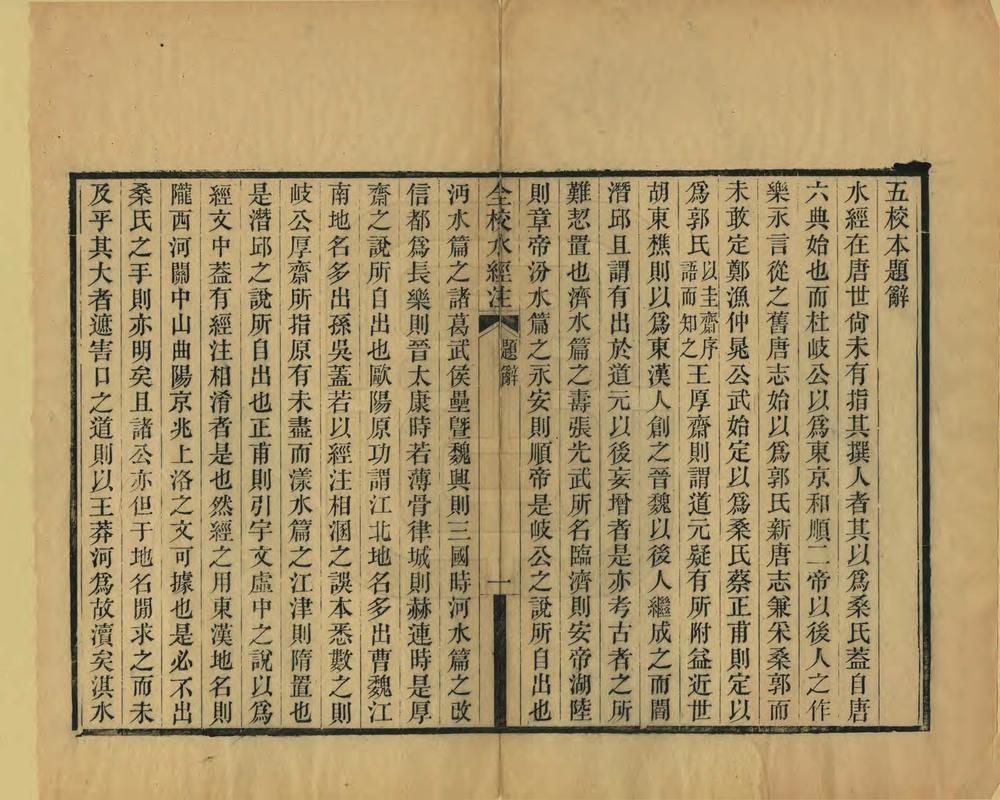 五校本題辭
水經在唐世尙未有指其撰人者其以爲桑氏蓋自唐
六典始也而杜岐公以爲東京和順二帝以後人之作
樂永言從之舊唐志始以爲郭氏新唐志兼采桑郭而
未敢定鄭漁仲晁公武始定以爲桑氏蔡正甫則定以
爲郭氏以圭齋序語而知之王厚齋則謂道元疑有所附益近世
胡東樵則以爲東漢人創之晉魏以後人繼成之而閻
潛邱且謂有出於道元以後妄增者是亦考古者之所
難恝置也濟水篇之壽張光武所名臨濟則安帝湖陸
則章帝汾水篇之永安則順帝是岐公之說所自出也
全校水經注 題辭 一
沔水篇之諸葛武侯壘暨魏興則三國時河水篇之改
信都爲長樂則晉太康時若薄骨律城則赫連時是厚
齋之說所自出也歐陽原功謂江北地名多出曹魏江
南地名多出孫吳蓋若以經注相溷之誤本悉數之則
岐公厚齋所指原有未盡而漾水篇之江津則隋置也
是潛邱之說所自出也正甫則引宇文虛中之說以爲
經文中葢有經注相淆者是也然經之用東漢地名則
隴西河關中山曲陽京兆上洛之文可據也是必不出
桑氏之手則亦明矣且諸公亦但于地名閒求之而未
及乎其大者遮害口之道則以王莽河爲故瀆矣淇水